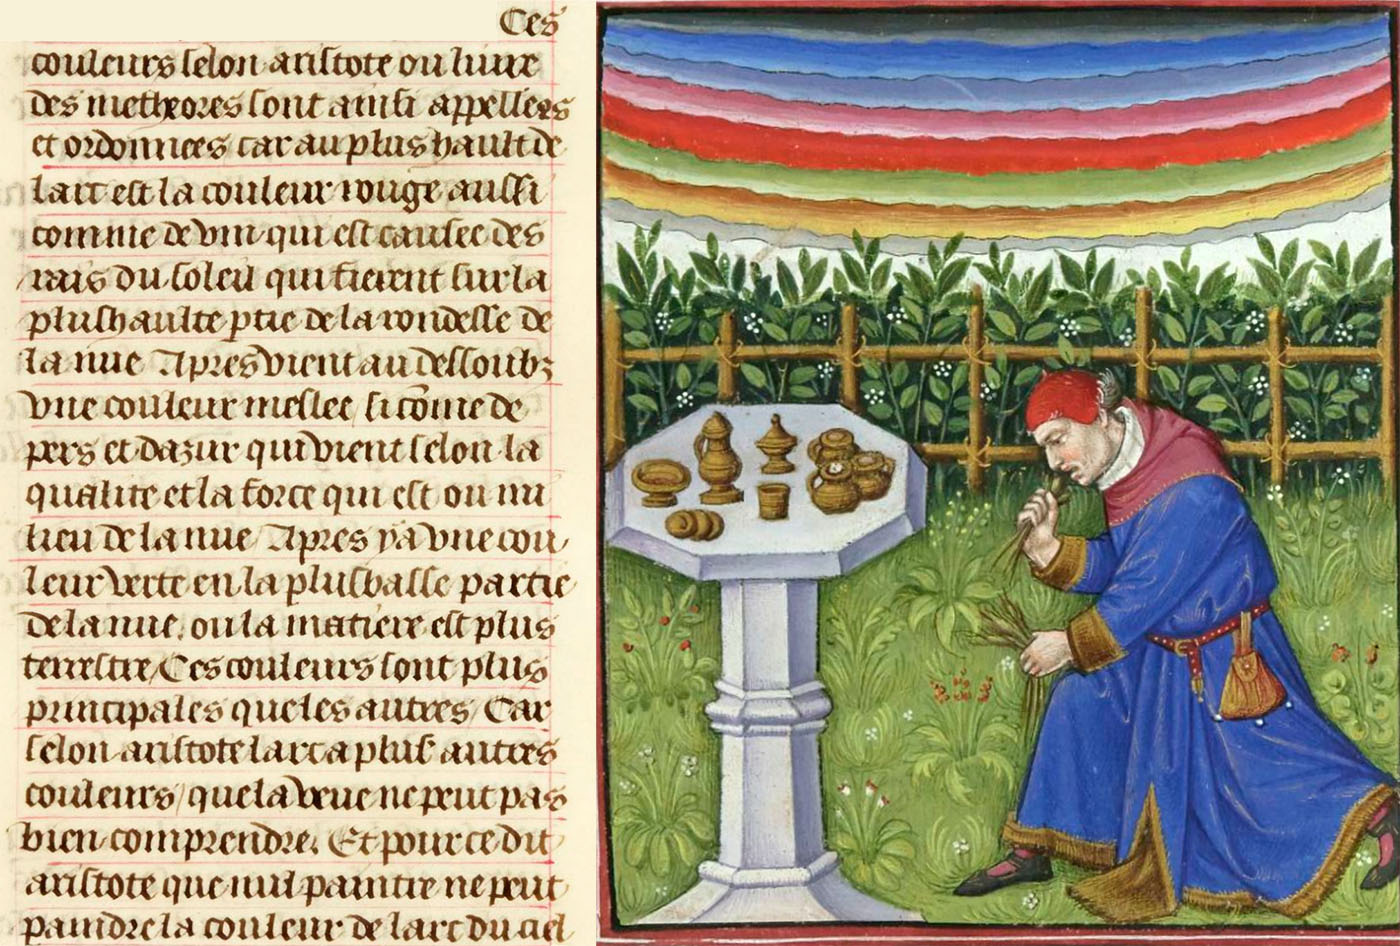 Ces
couleurs selon aristote ou liure
des metheores sont ainsi appellees
et ordonnees car au plus hault de
larc est la couleur rouge aussi
comme de vin qui est causee des
rais du soleil qui fierent sur la
plushaulte ptie de la rondesse de
la nue Apres vient au dessoubz
vne couleur meslee si cōme de
pers et dazur qui vient selon la
qualite et la force qui est ou mi
lieu de la nue Apres ya vne cou
leur verte en la plusbasse partie
de la nue. ou la matiere est plus
terrestre/ Ces couleurs sont plus
principales que les autres/ Car
selon aristote larc a plus autres
couleurs/ que la veue ne peut pas
bien comprendre. Et pour ce dit
aristote que nul paintre ne peut
paindre la couleur de larc du ciel